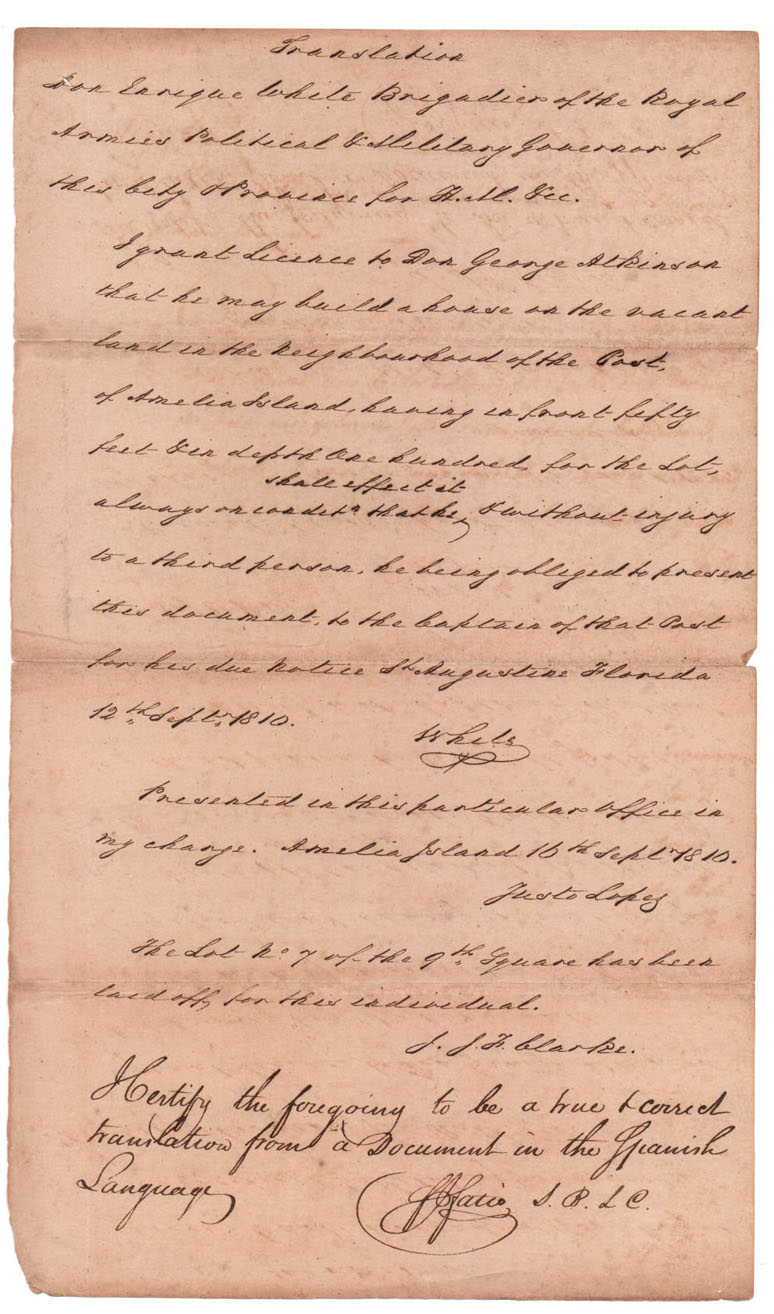 Translation
Don Enrique White Brigadier of the Royal
Armies Political & Military Governor of
this City & Province for H. M. &cc.
I grant Licence to Don George Atkinson
that he may build a house on the vacant
land in the Neighbourhood of the Post,
of Amelia Island, having in front fifty
feet & in depth One hundred, for the Lot,
shall effect it
always on condtn that he, & without injury
to a third person, he being obliged to present
this document, to the Captain of that Post
for his due Notice St Augustine Florida
12th Septr 1810.
White
Presented in this particular Office in
my charge. Amelia Island 16th Septr 1810.
Justo Lopez
The Lot No 7 of the 9th Square has been
laid off, for this individual.
J. J. F. Clarke.
I Certify the foregoing to be a true & correct
translation from a Document in the Spanish
Language
Fatio S. B. L C.